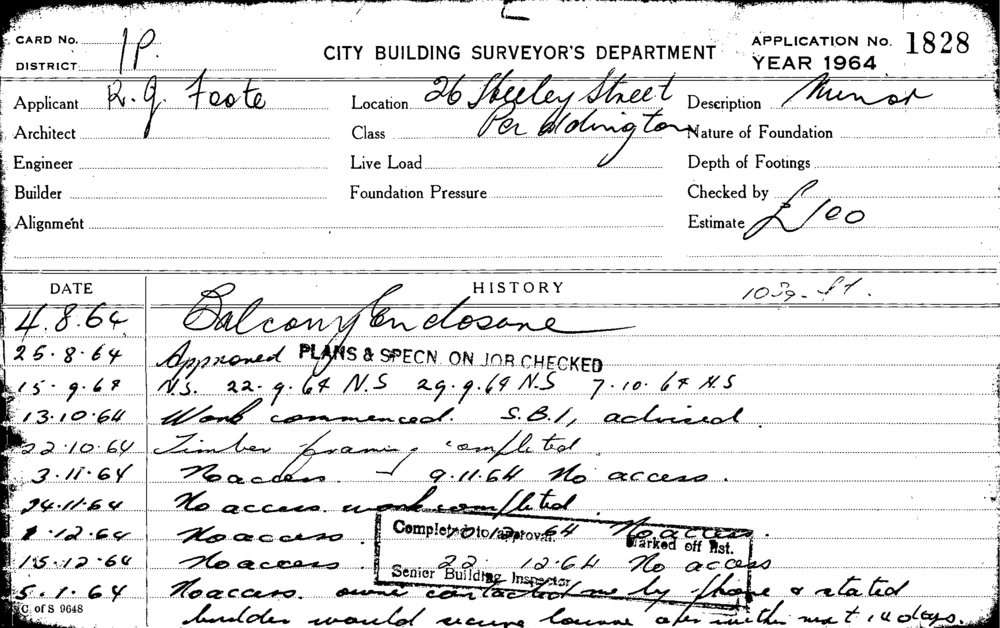 CARD No. 1P.
DISTRICT
CITY BUILDING SURVEYOR'S DEPARTMENT
APPLICATION No. 1828
YEAR 1964
Applicant R. J. Foote
Location 26 Street
Description Minor
Architect
Class Paddington
Nature of Foundation
Engineer
Live Load
Depth of Footings
Builder
Foundation Pressure
Checked by
Alignment
Estimate £100
DATE
HISTORY
103 sq. ft.
4.8.64 Balcony Enclosure
25.8.64 Approved PLANS & SPECN. ON JOB CHECKED
15.9.64 N.S. 22.9.64 N.S 29.9.64 N.S 7.10.64 N.S
13.10.64 Work commenced. S.B.I, advised
22.10.64 Timber framing completed
3.11.64 No access. 9.11.64 No access.
24.11.64 No access. work completed
.12.64 No access. 12 64 No access.
Completed to approval.
Marked off list.
15.12.64 No access. 22.12.64 No access
Senior Building Inspector
5.1.64 No access. owner contacted me by phone & stated
C. of S 9648
builder would secure within next 14 days.